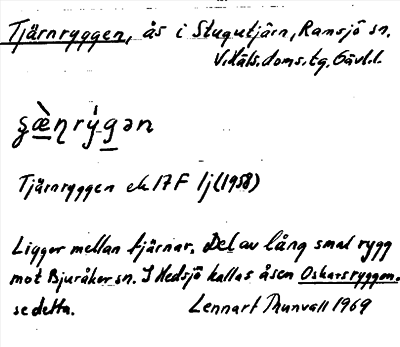 Tjärnryggen, ås i Stugutjärn, Ramsjö sn.
V. Häls. doms. tg, Gävl. l.
ʂæ̀ɳrýgən
Tjärnryggen ek 17 F 1j (1958)
Ligger mellan tjärnar. Del av lång smal rygg
mot Bjuråker sn. I Hedsjö kallas åsen Oskarsryggen.
se detta. Lennart Thunvall 1969